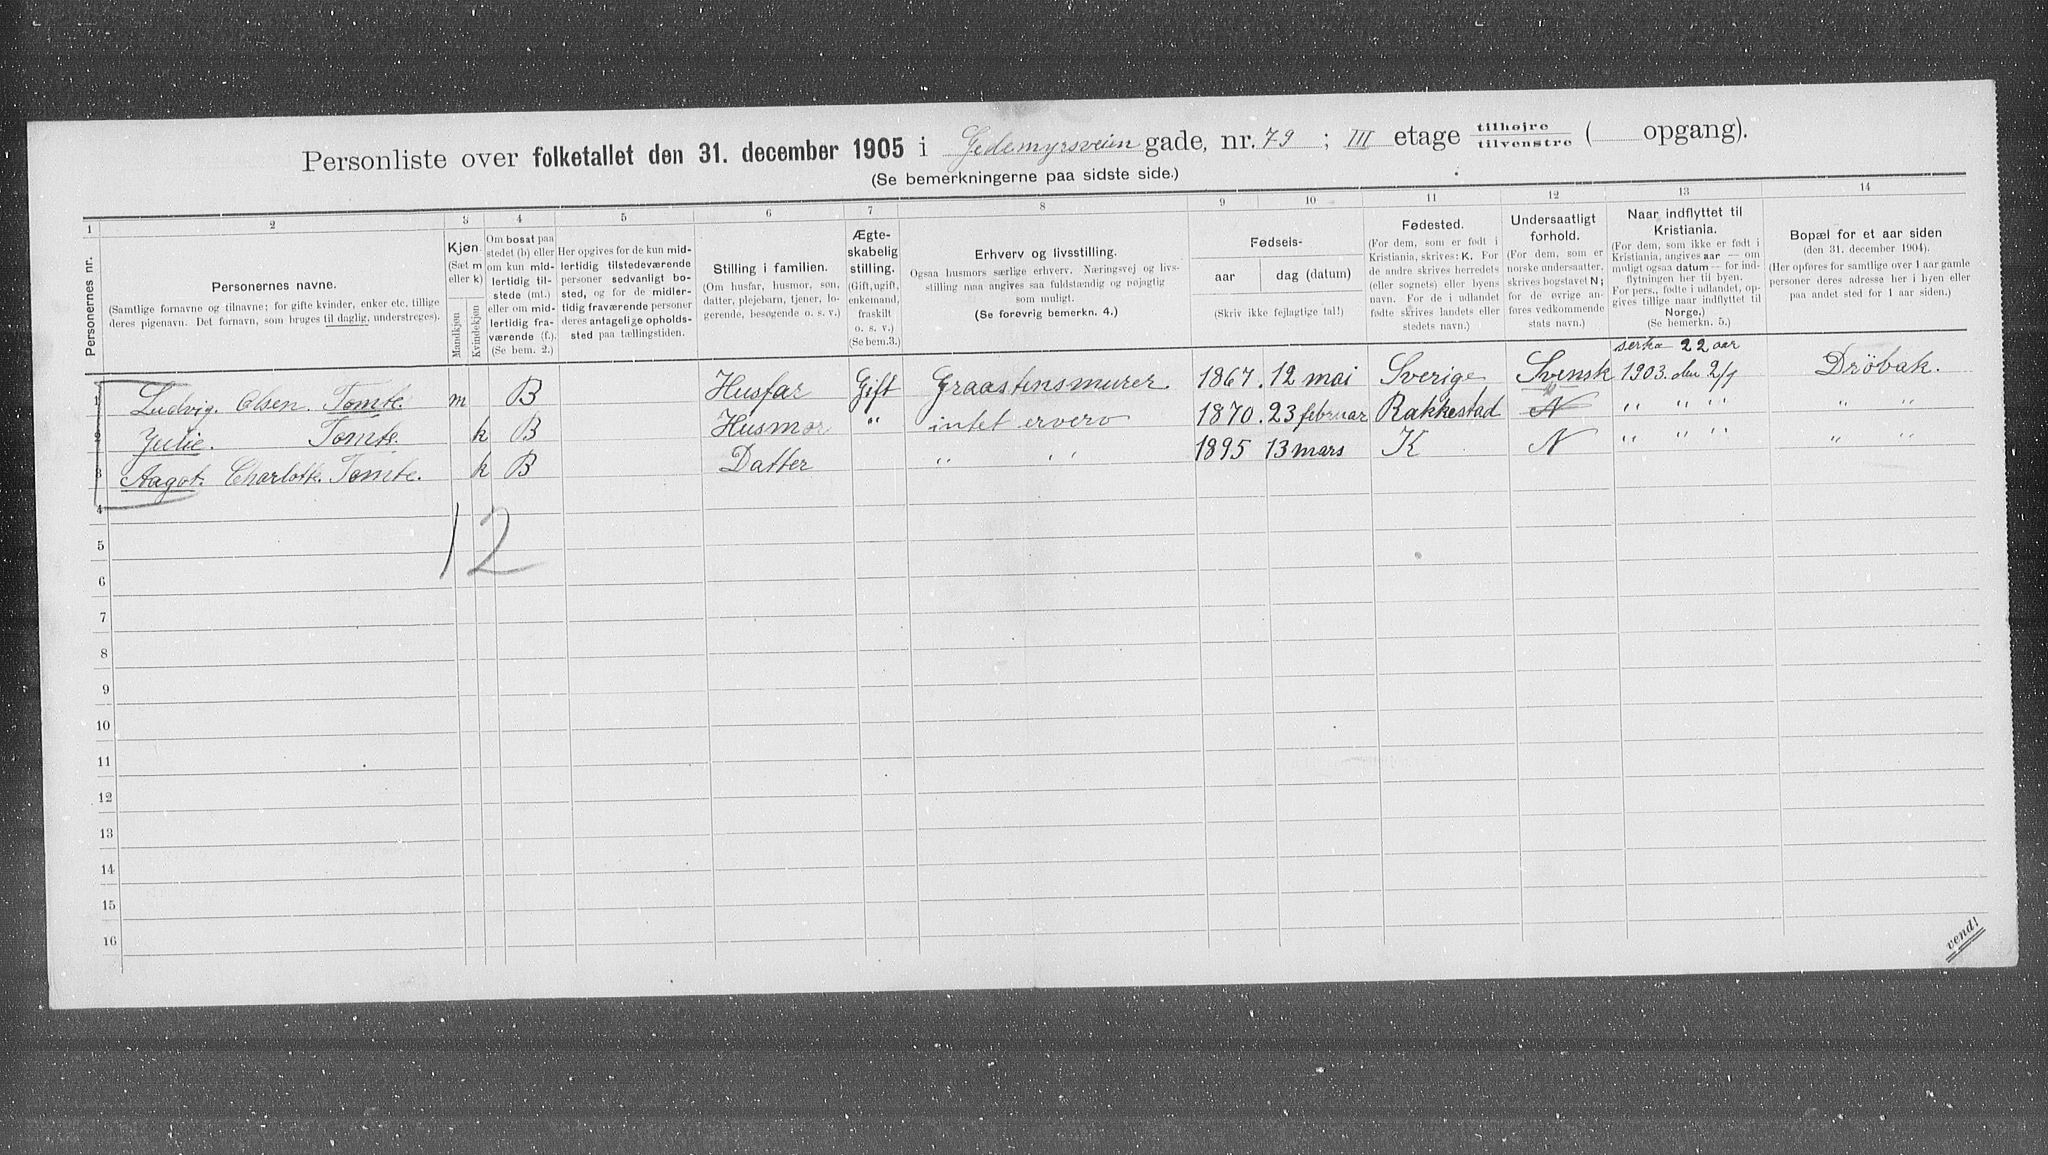 Personliste over folketallet den 31. december 1905 i Gedemyrsveien gade, nr. 79 ; III etage tilhøjre / tilvenstre ( opgang).
(Se bemerkningerne paa sidste side.)
1 2 3 4 5 6 7 8 9 10 11 12 13 14
Personernes nr.
Personernes navne.
(Samtlige fornavne og tilnavne; for gifte kvinder, enker etc. tillige deres pigenavn. Det fornavn, som bruges til daglig, understreges).
Kjøn.
(Sæt m eller k)
Mandkjøn
Kvindekjøn
Om bosat paa stedet (b) eller om kun midlertidig tilstede (mt.) eller om midlertidig fraværende (f.). (Se bem. 2.)
Her opgives for de kun midlertidig tilstedeværende personer sedvanligt bosted, og for de midlertidig fraværende personer deres antagelige opholdssted paa tællingstiden.
Stilling i familien.
(Om husfar, husmor, søn, datter, plejebarn, tjener, logerende, besøgende o. s. v.)
Ægteskabelig stilling.
(Gift, ugift, enkemand, fraskilt o. s. v.)
(Se bem.3.)
Erhverv og livsstilling.
Ogsaa husmors særlige erhverv. Næringsvej og livsstilling maa angives saa fuldstændig og nøjagtig som muligt.
(Se forøvrig bemerkn. 4.)
Fødsels-
aar
dag (datum)
(Skriv ikke fejlagtige tal!)
Fødested.
(For dem, som er født i Kristiania, skrives: K. For de andre skrives herredets (eller sognets) eller byens navn. For de i udlandet fødte skrives landets eller stedets navn.)
Undersaatligt forhold.
(For dem, som er norske undersaatter, skrives bogstavet N; for de øvrige anføres vedkommende stats navn.)
Naar indflyttet til Kristiania.
(For dem, som ikke er født i Kristiania, angives aar — om muligt ogsaa datum — for indflytningen her til byen. For pers., fødte i udlandet, opgives tillige naar indflyttet til Norge.)
(Se bemerkn. 5.)
Bopæl for et aar siden
(den 31. december 1904).
(Her opføres for samtlige over 1 aar gamle personer deres adresse her i byen eller paa andet sted for 1 aar siden.)
serka 22 aar
1 Ludvig. Olsen. Tomte. m B Husfar Gift Graastensmurer 1867. 12 mai Sverige Svensk 1903. den 2/9 Dröbak.
2 Tomte. k B Husmor " intet erverv 1870. 23 februar Rakkestad N " " " " "
3 Aagot. Charlotte. Tomte. k B Datter " " 1895 13 mars K N " " " " "
4
12
5
6
7
8
9
10
11
12
13
14
15
16
vend!